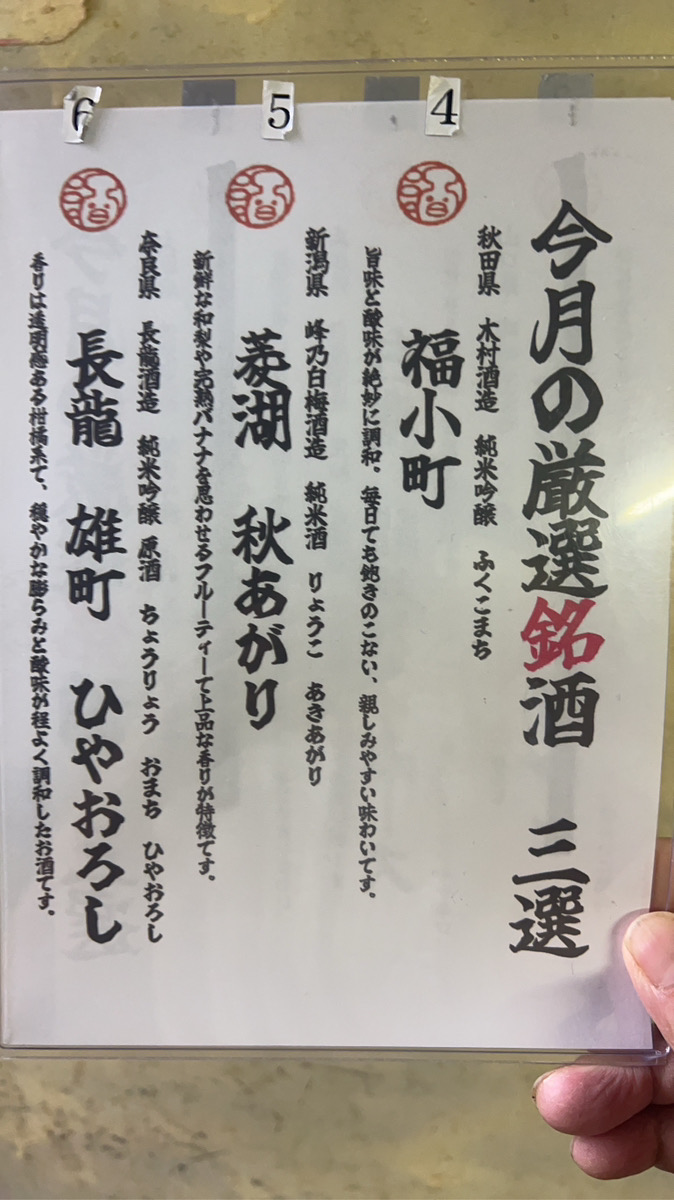 今月の厳選銘酒 三選
4
秋田県 木村酒造 純米吟醸 ふくこまち
福小町
旨味と酸味が絶妙に調和。毎日でも飽きのこない、親しみやすい味わいです。
5
新潟県 峰乃白梅酒造 純米酒 りょうこ あきあがり
菱湖 秋あがり
新鮮な和梨や完熟バナナを思わせるフルーティーで上品な香りが特徴です。
6
奈良県 長龍酒造 純米吟醸 原酒 ちょうりょう おまち ひやおろし
長龍 雄町 ひやおろし
香りは透明感ある柑橘系で、穏やかな膨らみと酸味が程よく調和したお酒です。